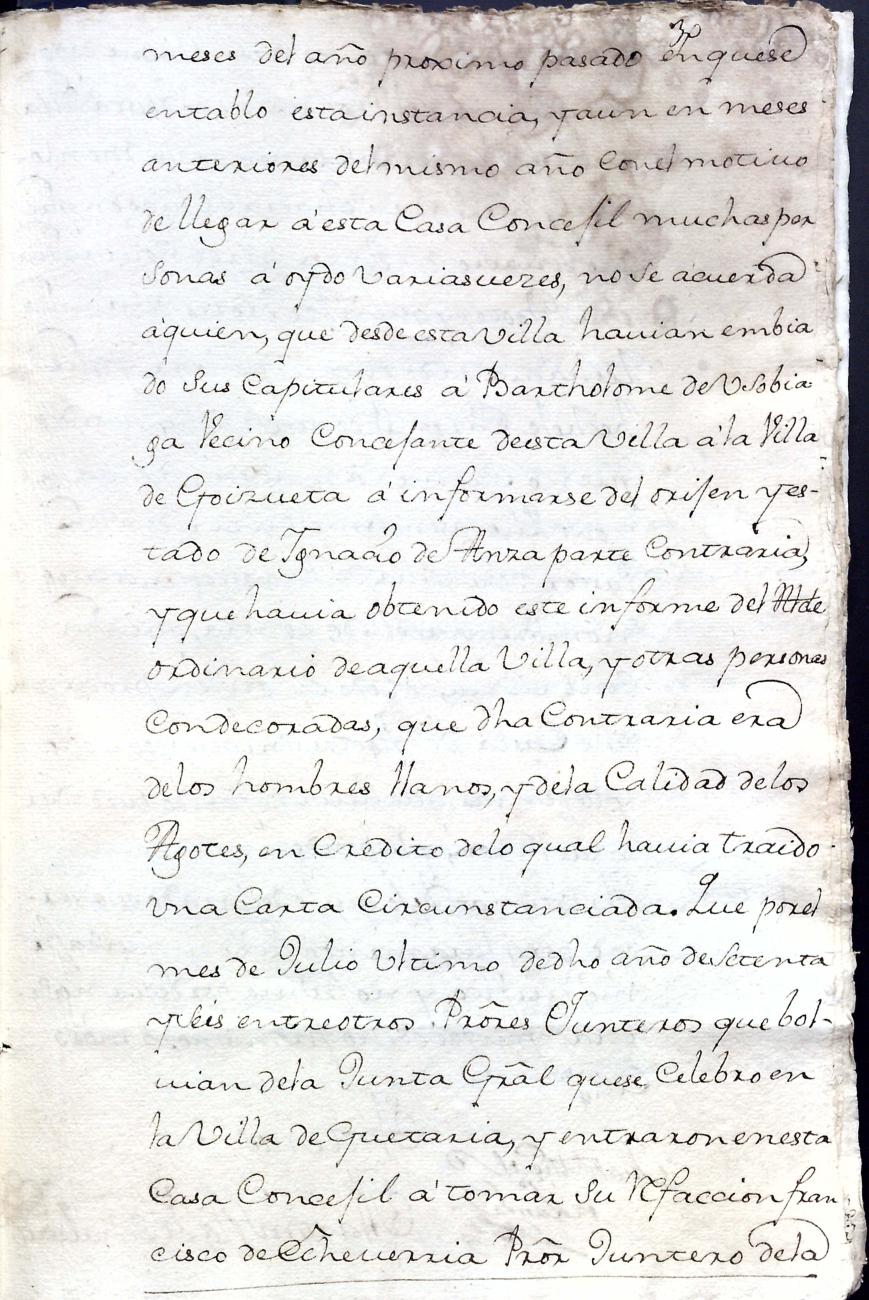 30
meses del año proximo pasado en quese
entablo esta instancia, y aun en meses
anteriores del mismo año con el motiuo
de llegar a' esta Casa Concesil muchas per
sonas a' oydo varias uezes, no se acuerda
a'quien, que desde esta Villa hauian embia
do sus Capitulares a' Bartholome de Vsobia
ga Vecino Concesante de esta Villa a' la Villa
de Goizueta a' informarse del orijen y es-
tado de Ygnacio de Anza parte Contraria,
y que hauia obtenido este informe del Alcde
ordinario de aquella Villa, y otras personas
Condecoradas, que dha Contraria era
de los hombres llanos, y de la Calidad de los
Agotes, en Credito de lo qual hauia traido
vna Carta Circunstanciada. Que por el
mes de Julio Vltimo de dho año de setenta
y seis entre otros Prõres Junteros que bol-
uian de la Junta Grãl que se Celebro en
la Villa de Guetaria, y entraron en esta
Casa Concesil a' tomar su Refaccion fran
cisco de Echeverria Prõr Juntero de la